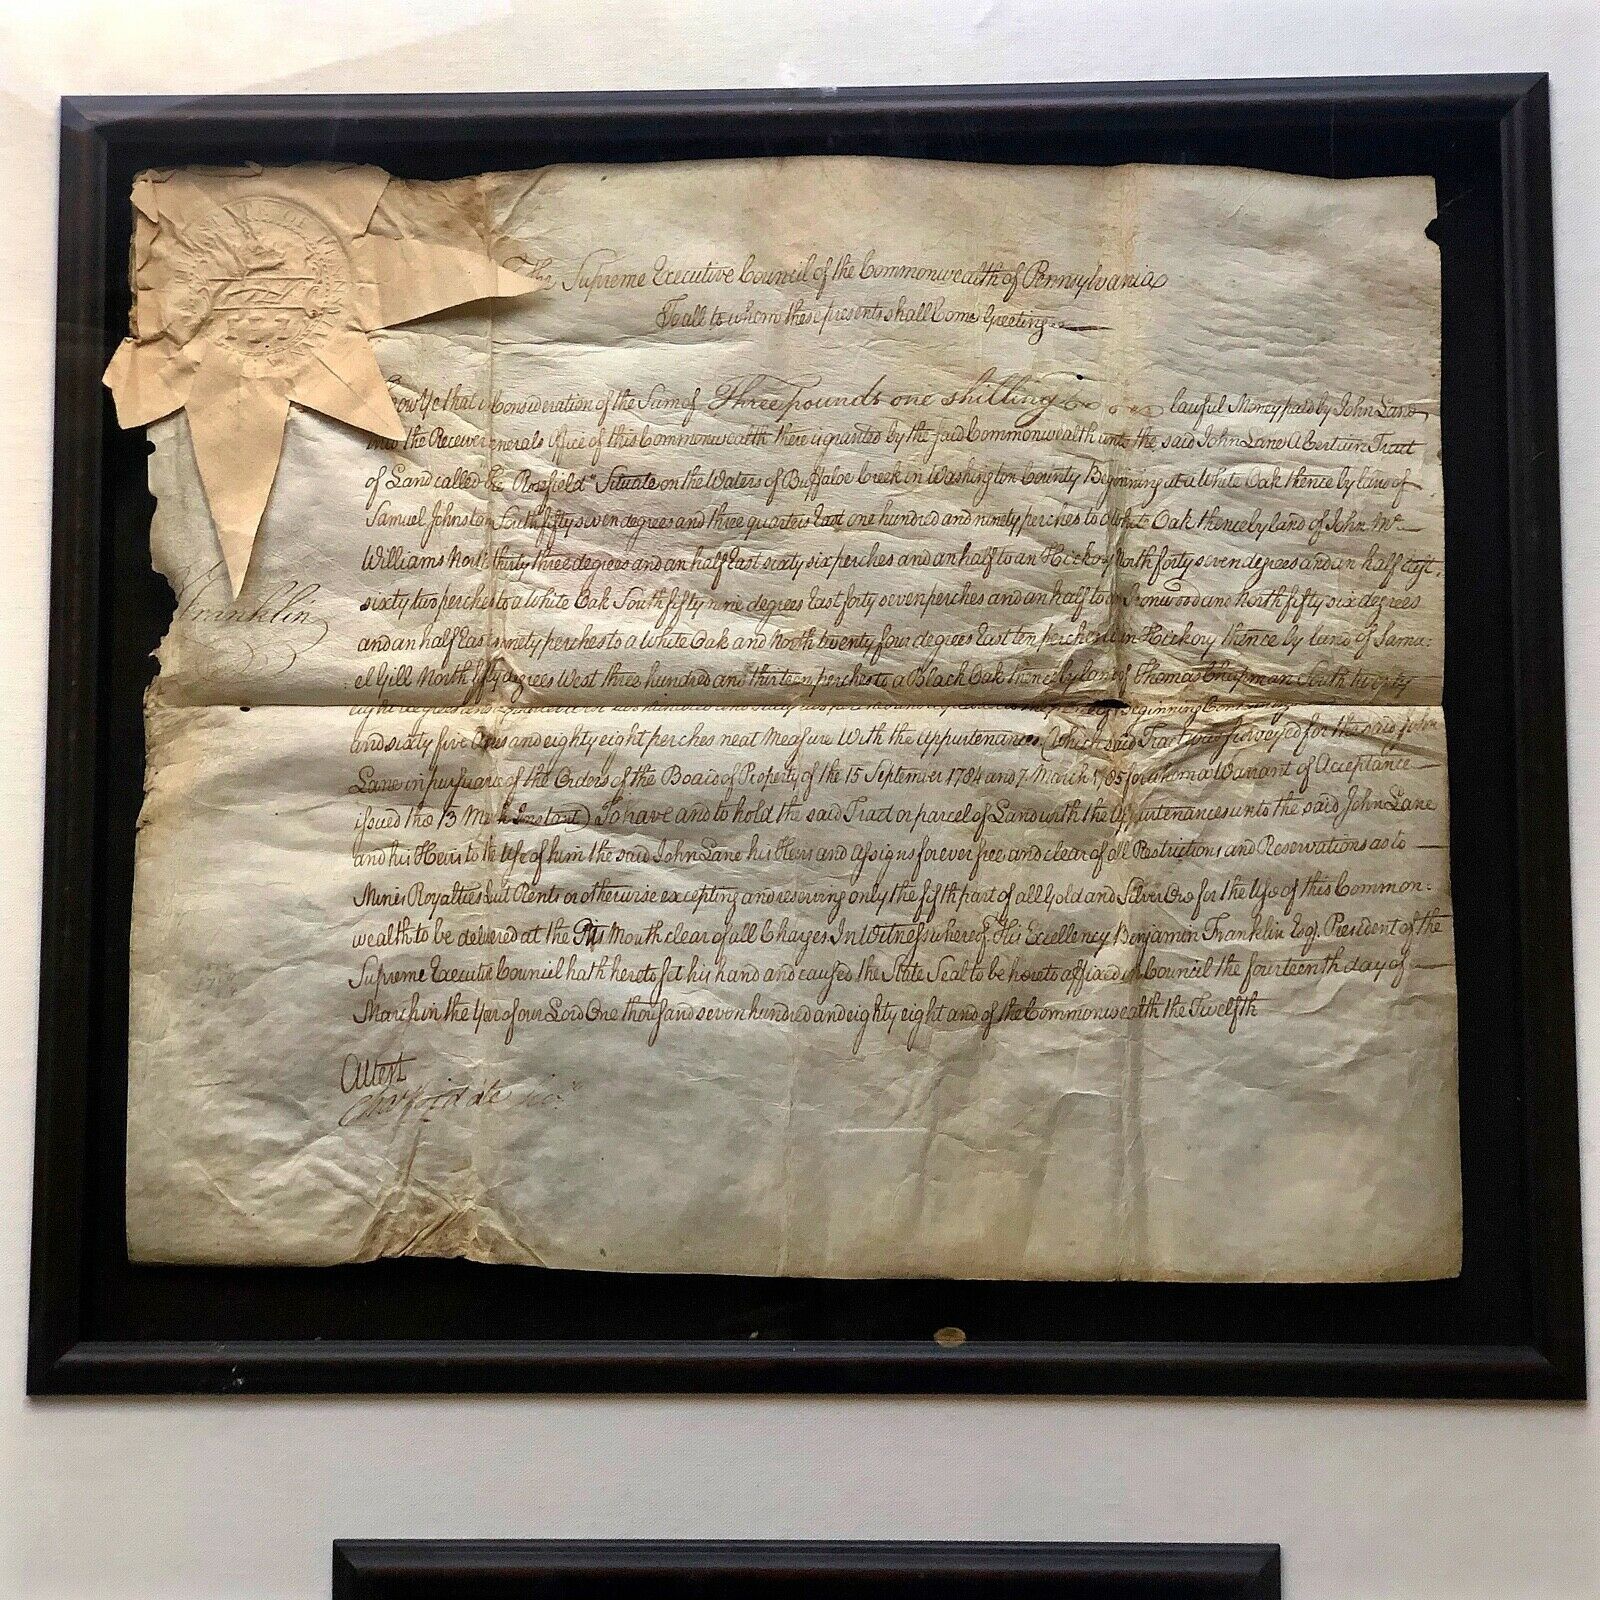 The Supreme Executive Council of the Commonwealth of Pennsylvania
To all to whom these presents shall Come Greeting
Know Ye that in Consideration of the Sum of Three pounds one shilling lawful Money paid by John Lane
into the Receiver Generals Office of this Commonwealth there is granted by the said Commonwealth unto the said John Lane A Certain Tract
of Land called "Rosefield" Situate on the Waters of Buffaloe Creek in Washington County Beginning at a White Oak thence by land of
Samuel Johnston South fifty seven degrees and three quarters East one hundred and ninety perches to a White Oak thence by land of John Mc
Williams North thirty three degrees and an half East sixty six perches and an half to an Hickory North forty seven degrees and an half East
sixty two perches to a White Oak South fifty nine degrees East forty seven perches and an half to an Ironwood and North fifty six degrees
Franklin
and an half East ninety perches to a White Oak and North twenty four degrees East ten perches to an Hickory thence by land of Samu:
el Gill North fifty degrees West three hundred and thirteen perches to a Black Oak thence by land of Thomas Chapman South twenty
eight degrees Beginning Containing
and sixty five Acres and eighty eight perches neat Measure With the appurtenances (Which said Tract was surveyed for the said John
Lane in pursuance of the Orders of the Board of Property of the 15 September 1784 and 7 March 1785 for whom a Warrant of Acceptance
issued the 13 March Instant) To have and to hold the said Tract or parcel of Land with the Appurtenances unto the said John Lane
and his Heirs to the Use of him the said John Lane his Heirs and Assigns forever free and clear of all Restrictions and Reservations as to
Mines Royalties Quit Rents or otherwise excepting and reserving only the fifth part of all Gold and Silver Ore for the Use of this Common:
wealth to be delivered at the Pits Mouth clear of all Charges In Witness whereof His Excellency Benjamin Franklin Esq. President of the
Supreme Executive Council hath hereto set his hand and caused the State Seal to be hereto affixed in Council the fourteenth day of
March in the Year of our Lord One thousand seven hundred and eighty eight and of the Commonwealth the Twelfth
Attest
Chas Biddle Secy